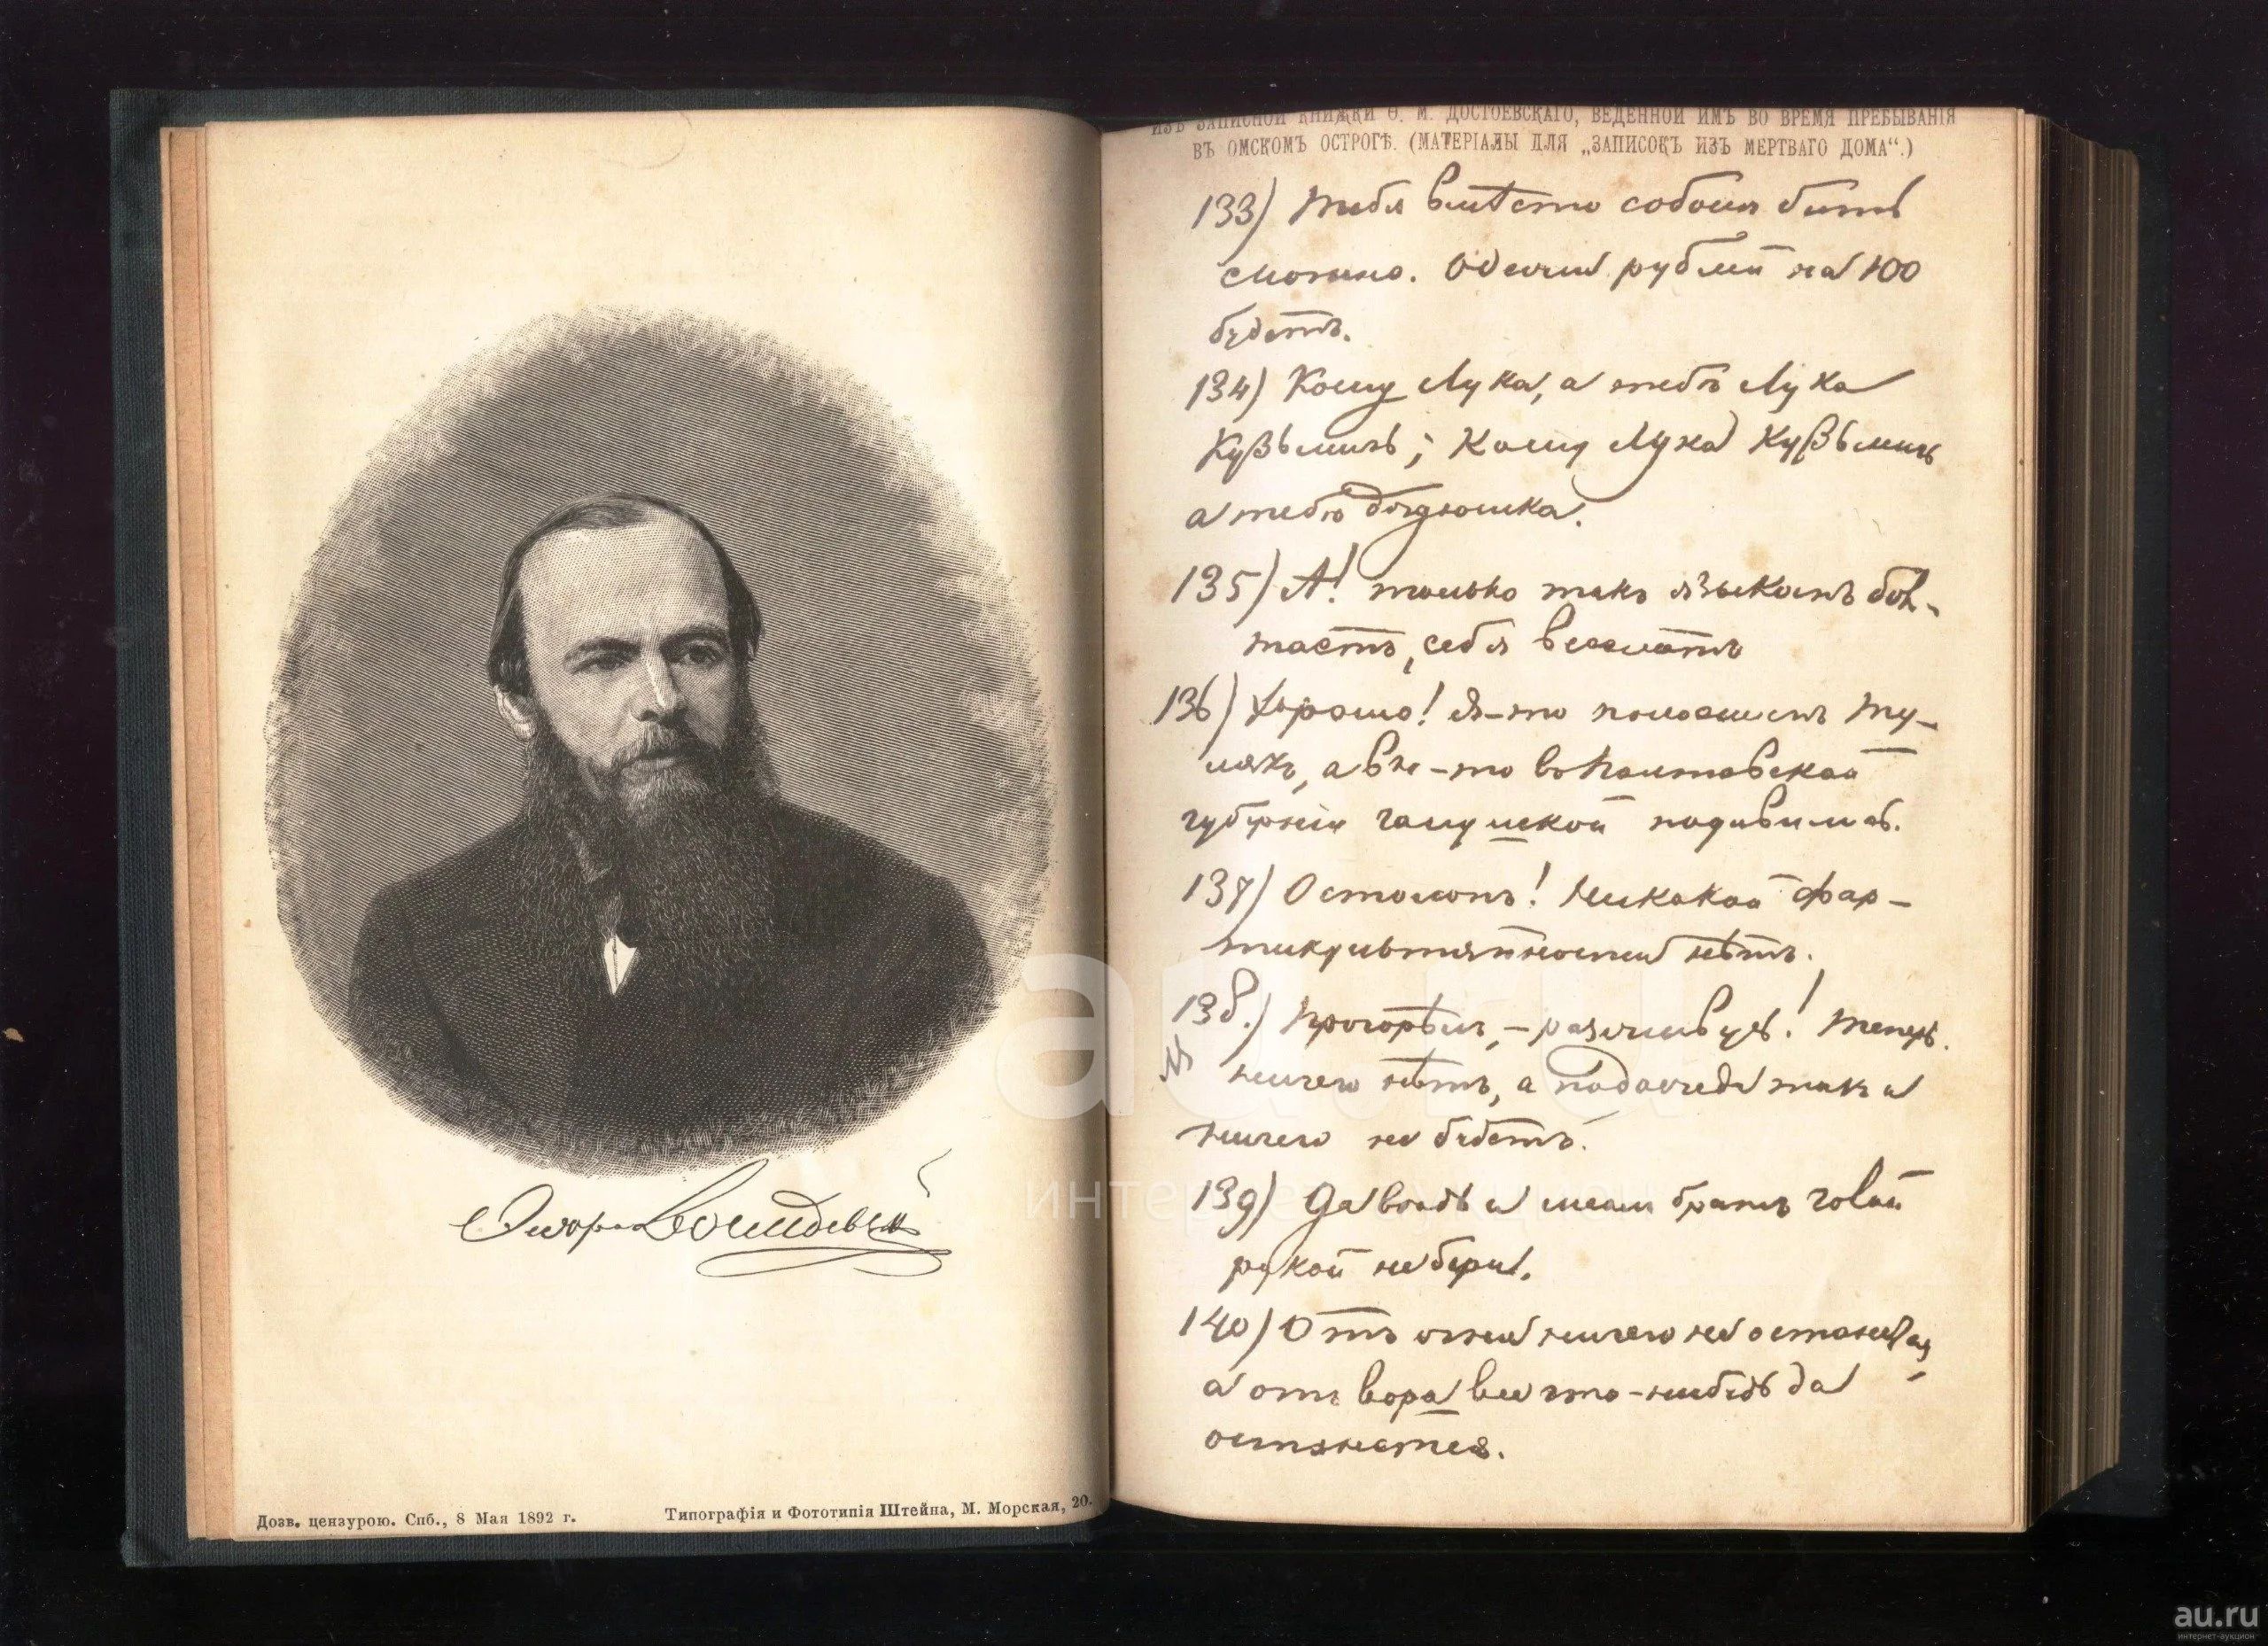 Ѳедоръ Достоевскій
Дозв. цензурою. Спб., 8 Мая 1892 г.
Типографія и Фототипія Штейна, М. Морская, 20.
ИЗЪ ЗАПИСНОЙ КНИЖКИ Ѳ. М. ДОСТОЕВСКАГО, ВЕДЕННОЙ ИМЪ ВО ВРЕМЯ ПРЕБЫВАНІЯ
ВЪ ОМСКОМЪ ОСТРОГѢ. (МАТЕРІАЛЫ ДЛЯ „ЗАПИСОКЪ ИЗЪ МЕРТВАГО ДОМА“.)
133) Тебя вмѣсто собаки бить
можно. Одежи рублей на 100
будетъ.
134) Кому Лука, а тебѣ Лука
Кузьмичъ; Кому Лука Кузьмичъ
а тебѣ дядюшка.
135) А! только такъ языкомъ бол-
таетъ, себя веселитъ
136) Хорошо! Я-то положимъ ту-
лякъ, а вы-то въ Полтавской
губерніи галушкой подавились.
137) Остолопъ! Никакой фар-
тикультяпности нѣтъ.
138.) Прогорѣли, – разживусь! Теперь
ничего нѣтъ, а подожди такъ и
ничего не будетъ.
139) Да вѣдь и меня братъ голой
рукой не бери.
140) Отъ огня ничего не останется,
а отъ вора все что-нибудь да
останется.
au.ru
интернет-аукцион
au.ru
интернет-аукцион